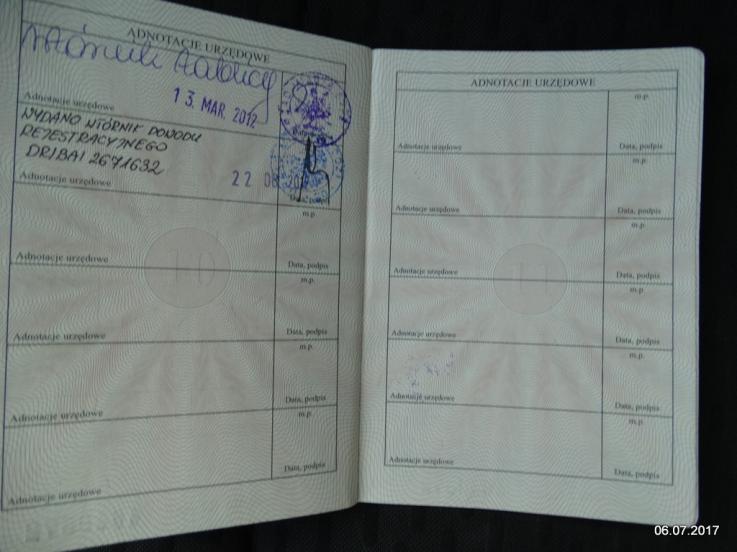 ADNOTACJE URZĘDOWE
Wtórnik tablicy
Adnotacje urzędowe
13. MAR. 2012
WYDANO WTÓRNIK DOWODU
REJESTRACYJNEGO
DR/BAI 2671632
Adnotacje urzędowe
22
Data, podpis
m.p.
Adnotacje urzędowe
Data, podpis
m.p.
Adnotacje urzędowe
Data, podpis
m.p.
Adnotacje urzędowe
Data, podpis
m.p.
Adnotacje urzędowe
Data, podpis
10
ADNOTACJE URZĘDOWE
m.p.
Adnotacje urzędowe
Data, podpis
m.p.
Adnotacje urzędowe
Data, podpis
m.p.
Adnotacje urzędowe
Data, podpis
m.p.
Adnotacje urzędowe
Data, podpis
m.p.
Adnotacje urzędowe
Data, podpis
m.p.
Adnotacje urzędowe
Data, podpis
11
06.07.2017